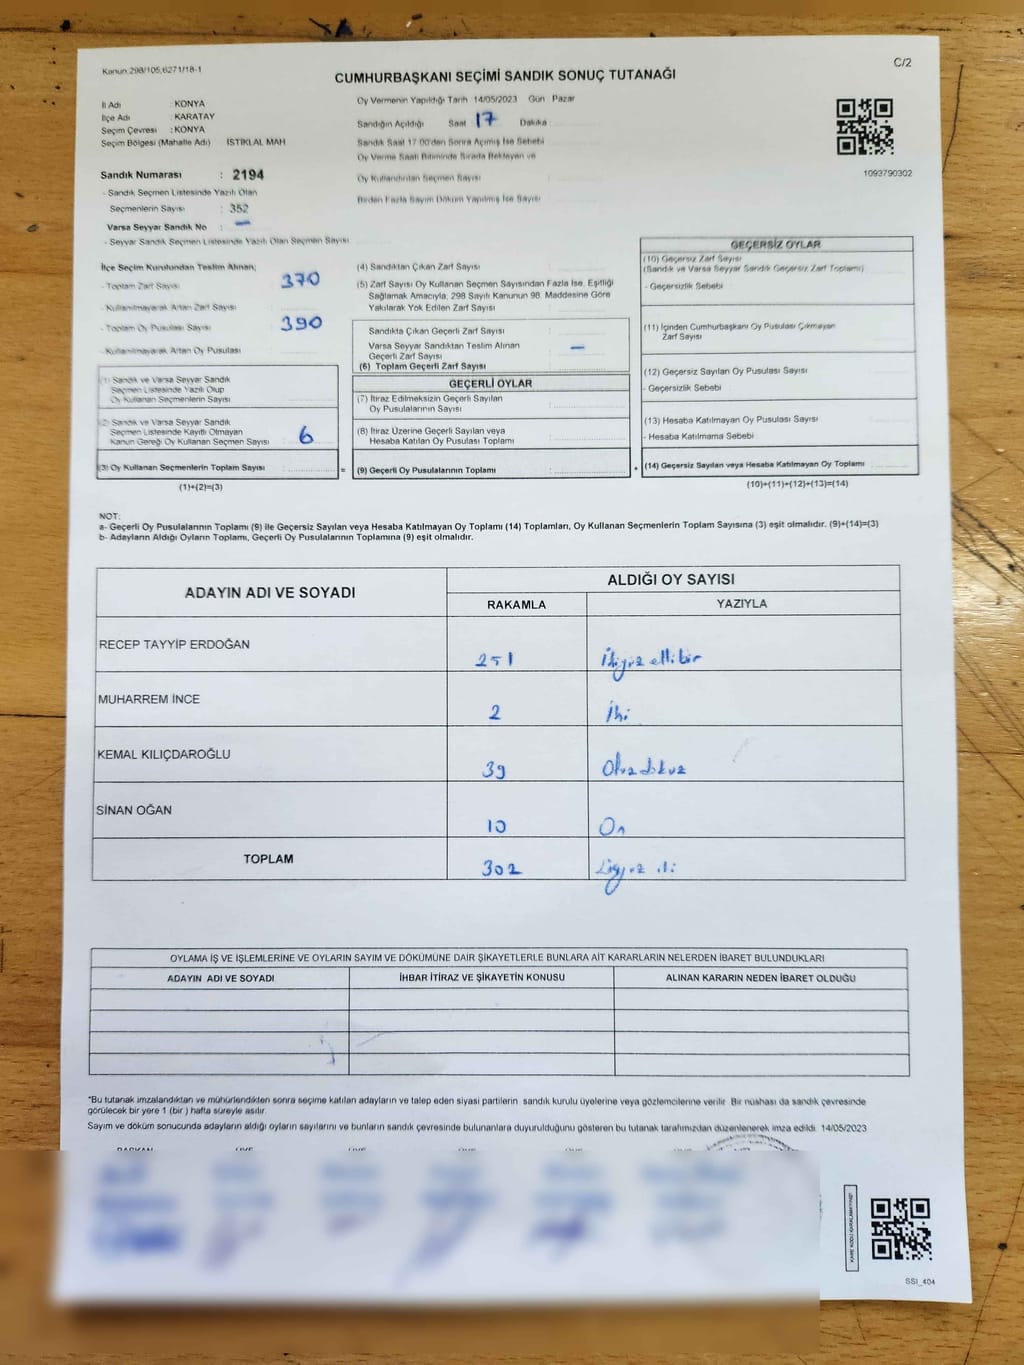 Kanun:298/105,6271/18-1
C/2
CUMHURBAŞKANI SEÇİMİ SANDIK SONUÇ TUTANAĞI
İl Adı : KONYA
İlçe Adı : KARATAY
Seçim Çevresi : KONYA
Seçim Bölgesi (Mahalle Adı) İSTİKLAL MAH
Oy Vermenin Yapıldığı Tarih 14/05/2023 Gün Pazar
Sandığın Açıldığı Saat 17 Dakika
Sandık Saat 17:00'den Sonra Açılmış İse Sebebi
Oy Verme Saati Bitiminde Sırada Bekleyen ve
Oy Kullandırılan Seçmen Sayısı
Birden Fazla Sayım Döküm Yapılmış İse Sayısı
1093790302
Sandık Numarası : 2194
- Sandık Seçmen Listesinde Yazılı Olan
Seçmenlerin Sayısı : 352
Varsa Seyyar Sandık No : —
- Seyyar Sandık Seçmen Listesinde Yazılı Olan Seçmen Sayısı
İlçe Seçim Kurulundan Teslim Alınan;
- Toplam Zarf Sayısı 370
- Kullanılmayarak Artan Zarf Sayısı
- Toplam Oy Pusulası Sayısı 390
- Kullanılmayarak Artan Oy Pusulası
(1) Sandık ve Varsa Seyyar Sandık
Seçmen Listesinde Yazılı Olup
Oy Kullanan Seçmenlerin Sayısı
(2) Sandık ve Varsa Seyyar Sandık
Seçmen Listesinde Kayıtlı Olmayan
Kanun Gereği Oy Kullanan Seçmen Sayısı 6
(3) Oy Kullanan Seçmenlerin Toplam Sayısı : =
(1)+(2)=(3)
(4) Sandıktan Çıkan Zarf Sayısı
(5) Zarf Sayısı Oy Kullanan Seçmen Sayısından Fazla İse, Eşitliği
Sağlamak Amacıyla, 298 Sayılı Kanunun 98. Maddesine Göre
Yakılarak Yok Edilen Zarf Sayısı
Sandıkta Çıkan Geçerli Zarf Sayısı
Varsa Seyyar Sandıktan Teslim Alınan
Geçerli Zarf Sayısı —
(6) Toplam Geçerli Zarf Sayısı
GEÇERLİ OYLAR
(7) İtiraz Edilmeksizin Geçerli Sayılan
Oy Pusulalarının Sayısı
(8) İtiraz Üzerine Geçerli Sayılan veya
Hesaba Katılan Oy Pusulası Toplamı
(9) Geçerli Oy Pusulalarının Toplamı : +
GEÇERSİZ OYLAR
(10) Geçersiz Zarf Sayısı
(Sandık ve Varsa Seyyar Sandık Geçersiz Zarf Toplamı)
- Geçersizlik Sebebi
(11) İçinden Cumhurbaşkanı Oy Pusulası Çıkmayan
Zarf Sayısı
(12) Geçersiz Sayılan Oy Pusulası Sayısı
- Geçersizlik Sebebi
(13) Hesaba Katılmayan Oy Pusulası Sayısı
- Hesaba Katılmama Sebebi
(14) Geçersiz Sayılan veya Hesaba Katılmayan Oy Toplamı
(10)+(11)+(12)+(13)=(14)
NOT:
a- Geçerli Oy Pusulalarının Toplamı (9) ile Geçersiz Sayılan veya Hesaba Katılmayan Oy Toplamı (14) Toplamları, Oy Kullanan Seçmenlerin Toplam Sayısına (3) eşit olmalıdır. (9)+(14)=(3)
b- Adayların Aldığı Oyların Toplamı, Geçerli Oy Pusulalarının Toplamına (9) eşit olmalıdır.
ADAYIN ADI VE SOYADI
ALDIĞI OY SAYISI
RAKAMLA YAZIYLA
RECEP TAYYİP ERDOĞAN 251 İkiyüz ellibir
MUHARREM İNCE 2 İki
KEMAL KILIÇDAROĞLU 39 Otuzdokuz
SİNAN OĞAN 10 On
TOPLAM 302
OYLAMA İŞ VE İŞLEMLERİNE VE OYLARIN SAYIM VE DÖKÜMÜNE DAİR ŞİKAYETLERLE BUNLARA AİT KARARLARIN NELERDEN İBARET BULUNDUKLARI
ADAYIN ADI VE SOYADI İHBAR İTİRAZ VE ŞİKAYETİN KONUSU ALINAN KARARIN NEDEN İBARET OLDUĞU
*Bu tutanak imzalandıktan ve mühürlendikten sonra seçime katılan adayların ve talep eden siyasi partilerin sandık kurulu üyelerine veya gözlemcilerine verilir. Bir nüshası da sandık çevresinde
görülecek bir yere 1 (bir ) hafta süreyle asılır.
Sayım ve döküm sonucunda adayların aldığı oyların sayılarını ve bunların sandık çevresinde bulunanlara duyurulduğunu gösteren bu tutanak tarafımızdan düzenlenerek imza edildi. 14/05/2023
SSİ_404